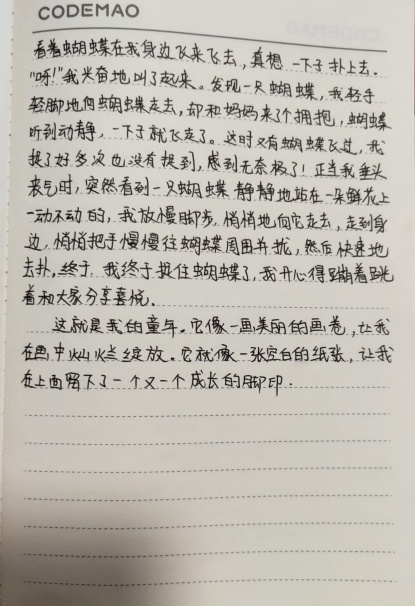 CODEMAO
看着蝴蝶在我身边飞来飞去，真想一下子扑上去。
“呀！”我兴奋地叫了起来。发现一只蝴蝶，我轻手
轻脚地向蝴蝶走去，却和妈妈来了个拥抱，蝴蝶
听到动静，一下子就飞走了。这时又有蝴蝶飞过，我
捉了好多次也没有捉到，感到无奈极了！正当我垂头
丧气时，突然看到一只蝴蝶静静地站在一朵鲜花上
一动不动的，我放慢脚步，悄悄地向它走去，走到身
边，悄悄把手慢慢往蝴蝶周围并拢，然后快速地
去扑，终于，我终于捉住蝴蝶了，我开心得蹦着跳
着和大家分享喜悦。
这就是我的童年。它像一画美丽的画卷，让我
在画中灿烂绽放。它就像一张空白的纸张，让我
在上面留下了一个又一个成长的脚印。